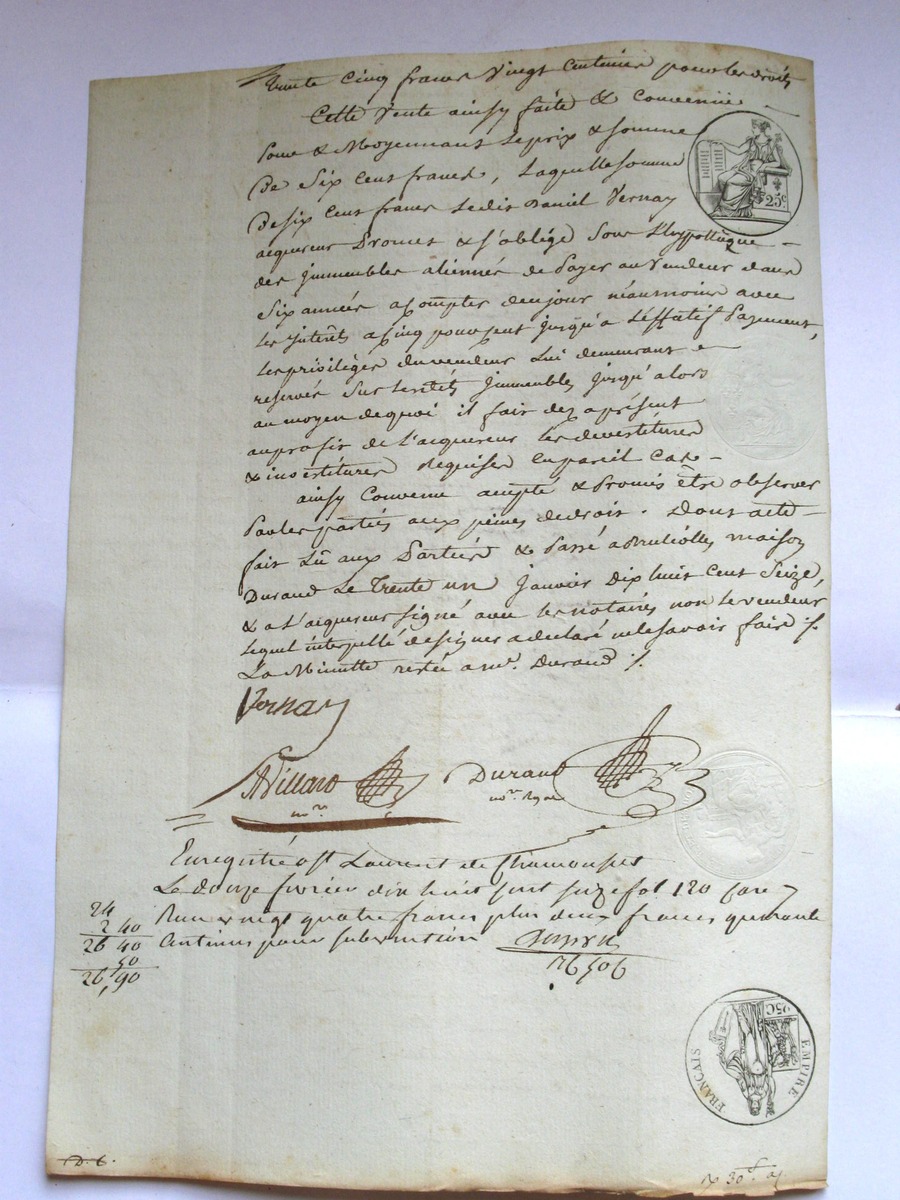 trente Cinq francs Vingt Centimes pour les droits
Cette Vente ainsy faite & Convenüe
Pour & Moyennant Le prix & somme
De Six Cent francs, Laquelle somme
De six Cent francs Ledit Daniel Vernay
acquereur Promet & s'oblige Sous L'hyppotèque
des Immeubles aliennés de Payer au Vendeur dans
Six années a Compter de ce jour néaumoins avec
Les Intérêts a Cinq pour cent jusqu'a L'éffectif Payement,
Les privilèges du vendeur Lui demeurant
reservés Sur lesdits Immeubles jusqu'alors
au moyen de quoi il fait dez a présent
au profit de L'acquereur les devestitures
& investitures Requises En pareil Cas
ainsy Convenu accepté & Promis être observer
Par les parties aux peines de droit. Dont acte
fait Lû aux Parties & Passé a Brulliolles maison
Durand Le Trente un Janvier Dix huit Cent Seize,
& a L'acquereur signé avec les notaires non le vendeur
Lequel interpellé de signer a declaré ne le savoir faire ./.
La Minutte restée a me. Durand ./.
Vernay
Villard Durand
nore. nore. Royal
Enregistré a St Laurent de Chamousset
Le douze fevrier dix huit cent seize fol 120 Case
Reçu vingt quatre francs plus deux francs quarante
Centimes pour subvention
24
2 40
26 40
50
26,90
26 506
25c.
EMPIRE FRANÇAIS
25C
D. 6.
30